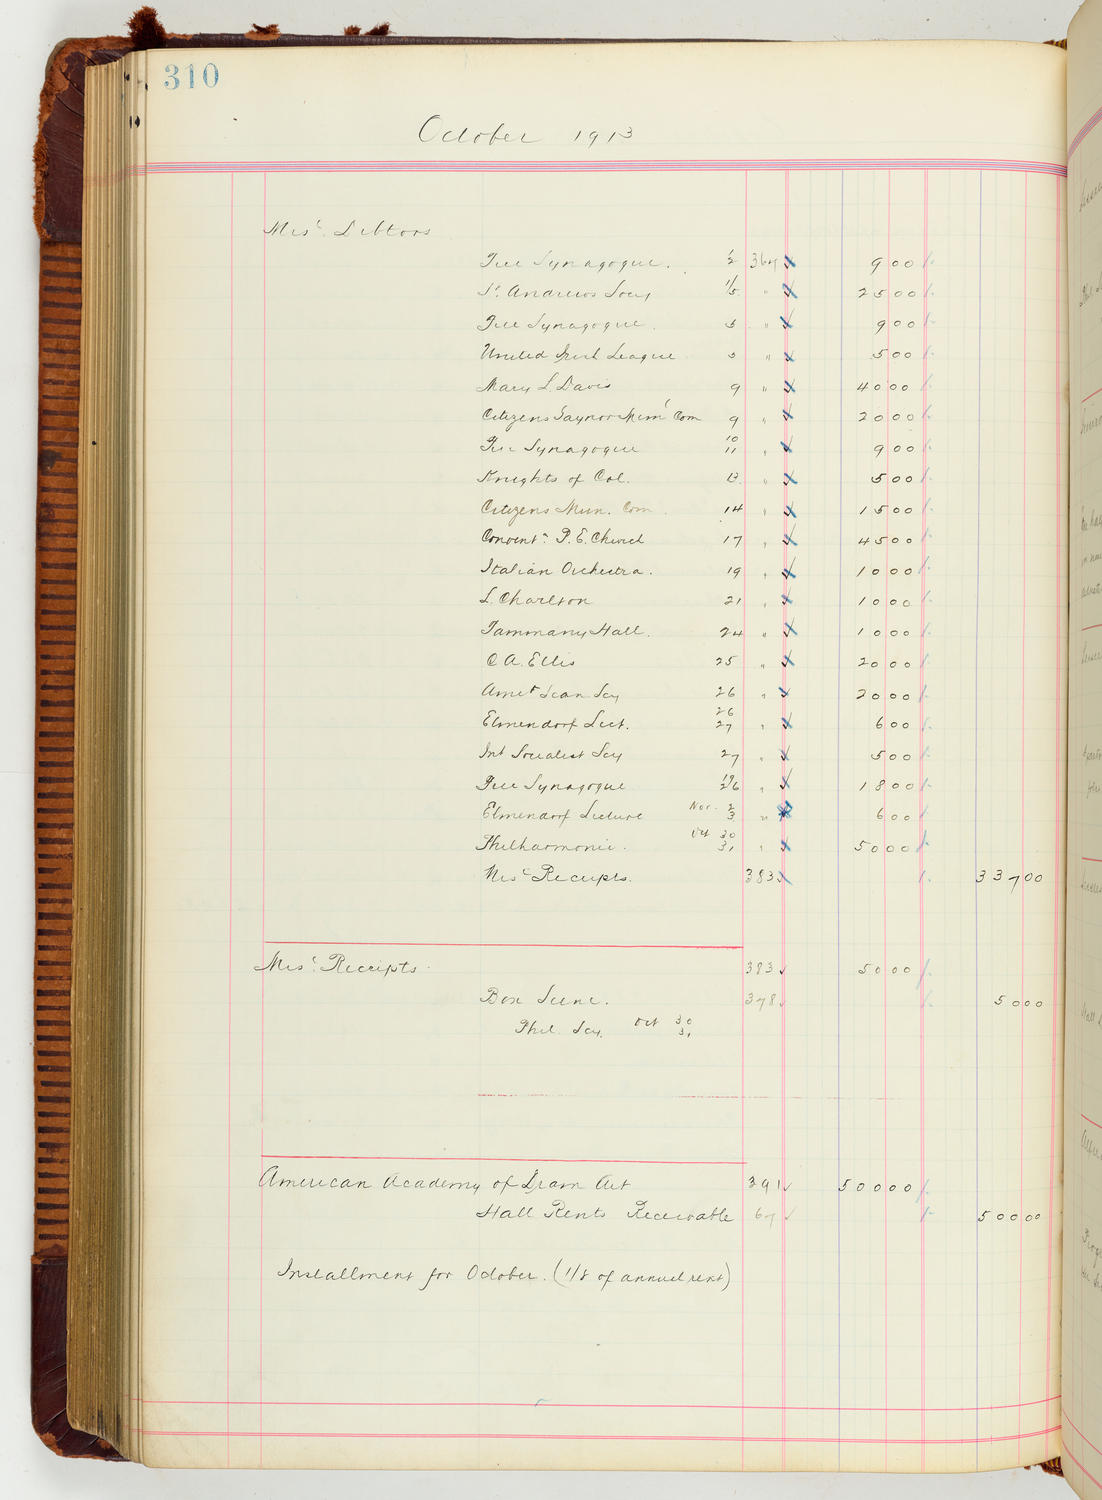 310
October 1913
Misc. Debtors
Free Synagogue. 1/2 367 9 00
St. Andrews Socy 1/5 " 25 00
Free Synagogue. 5 " 9 00
United Irish League 5 " 5 00
Mary L. Davis 9 " 40 00
Citizens Gaynor Mem'l Com 9 " 20 00
Free Synagogue 10 11 " 9 00
Knights of Col. 13 " 5 00
Citizens Mun. Com. 14 " 15 00
Convent'n P. E. Church 17 " 45 00
Italian Orchestra. 19 " 10 00
L. Charlton 21 " 10 00
Tammany Hall. 24 " 10 00
C A. Ellis 25 " 20 00
Scan Scy 26 " 20 00
Elmendorf Lect. 26 27 " 6 00
Int Socialist Scy 27 " 5 00
Free Synagogue 19 26 " 18 00
Elmendorf Lecture Nov. 2 3 " 6 00
Philharmonic. Oct 30 31 " 50 00
Misc Receipts. 383 337 00
Misc. Receipts. 383 50 00
Box Scene. 378 50 00
Phil. Scy. Oct 30 31
American Academy of Dram Art 391 500 00
Hall Rents Receivable 67 500 00
Installment for October. (1/8 of annual rent)